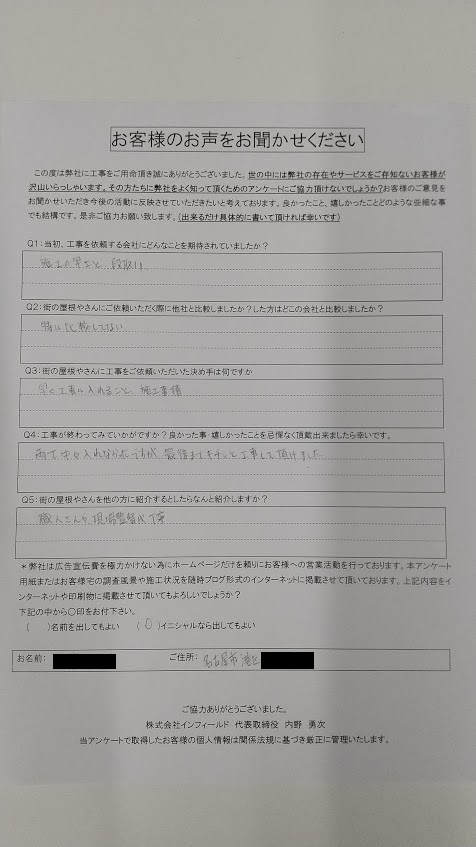 お客様のお声をお聞かせください
この度は弊社に工事をご用命頂き誠にありがとうございました。世の中には弊社の存在やサービスをご存知ないお客様が
沢山いらっしゃいます。その方たちに弊社をよく知って頂くためのアンケートにご協力頂けないでしょうか?お客様のご意見を
お聞かせいただき今後の活動に反映させていただきたいと考えております。良かったこと、嬉しかったことどのような些細な事
でも結構です。是非ご協力お願い致します。(出来るだけ具体的に書いて頂ければ幸いです)
Q1:当初、工事を依頼する会社にどんなことを期待されていましたか?
施工の早さと、段取り
Q2:街の屋根やさんにご依頼いただく際に他社と比較しましたか?した方はどこの会社と比較しましたか?
特に比較してない
Q3:街の屋根やさんに工事をご依頼いただいた決め手は何ですか
早く工事に入れること、施工実積
Q4:工事が終わってみていかがですか?良かった事・嬉しかったことを忌憚なく頂戴出来ましたら幸いです。
雨で中々入れなかったですが、最後までキチンと工事して頂けました
Q5:街の屋根やさんを他の方に紹介するとしたらなんと紹介しますか?
職人さんも、現場監督も丁寧
*弊社は広告宣伝費を極力かけない為にホームページだけを頼りにお客様への営業活動を行っております。本アンケート
用紙またはお客様宅の調査風景や施工状況を随時ブログ形式のインターネットに掲載させて頂いております。上記内容をイ
ンターネットや印刷物に掲載させて頂いてもよろしいでしょうか?
下記の中から〇印をお付下さい。
( )名前を出してもよい (〇)イニシャルなら出してもよい
お名前: ご住所: 名古屋市港区
ご協力ありがとうございました。
株式会社インフィールド 代表取締役 内野 勇次
当アンケートで取得したお客様の個人情報は関係法規に基づき厳正に管理いたします。